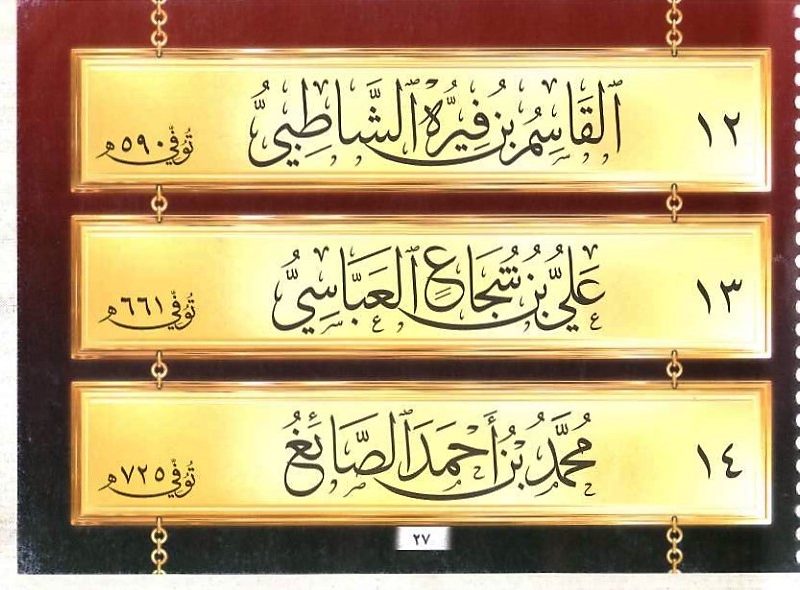 ١٢ القَاسِمُ بْنُ فِيرُّه الشَّاطِبِيُّ تُوُفِّيَ ٥٩٠هـ
١٣ عَلِيُّ بْنُ شُجَاعٍ العَبَّاسِيُّ تُوُفِّيَ ٦٦١هـ
١٤ مُحَمَّدُ بْنُ أَحْمَدَ الصَّائِغُ تُوُفِّيَ ٧٢٥هـ
٢٧